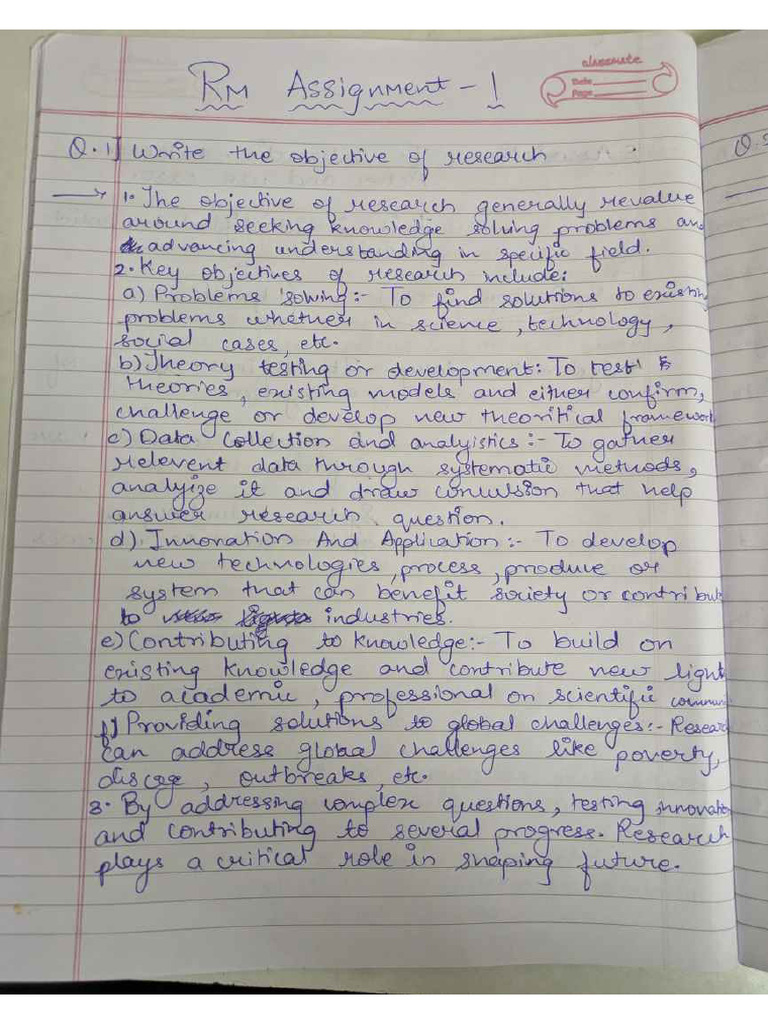 classmate
Date
Page
RM Assignment - 1
Q.1] Write the objective of research
Q.
→ 1. The objective of research generally revalue
around seeking knowledge solving problems and
advancing understanding in specific field.
2. Key objectives of research include:
a) Problems solving:- To find solutions to existing
problems whether in science, technology,
social cases, etc.
b) Theory testing or development: To test
theories, existing models and either confirm,
challenge or develop new theoritical framework
c) Data Collection and analyistics:- To gather
relevent data through systematic methods,
analyize it and draw conclussion that help
answer research question.
d) Innovation And Application:- To develop
new technologies, process, produce or
system that can benefit society or contribut
to industries.
e) Contributing to Knowledge:- To build on
existing knowledge and contribute new light
to academic, professional on scientific commun
f) Providing solutions to global challenges:- Researc
can address global challenges like poverty,
outbreaks, etc.
3. By addressing complex questions, testing innovatio
and contributing to several progress. Research
plays a critical role in shaping future.